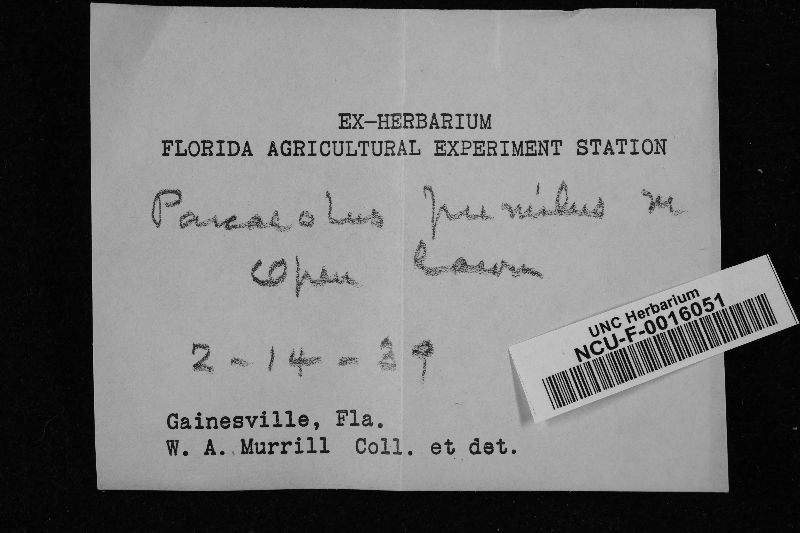 EX-HERBARIUM
FLORIDA AGRICULTURAL EXPERIMENT STATION
Panaeolus pumilus M
Open lawn
2-14-39
UNC Herbarium
NCU-F-0016051
Gainesville, Fla.
W. A. Murrill Coll. et det.